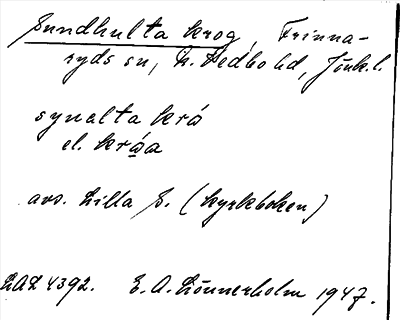 Sundhulta krog, Frinna-
ryds sn, N. Vedbo hd, Jönk.l.
synalta krå
el. kråa
avs. Lilla S. (kyrkboken)
LAL 4392. E. A. Lönnerholm 1947.